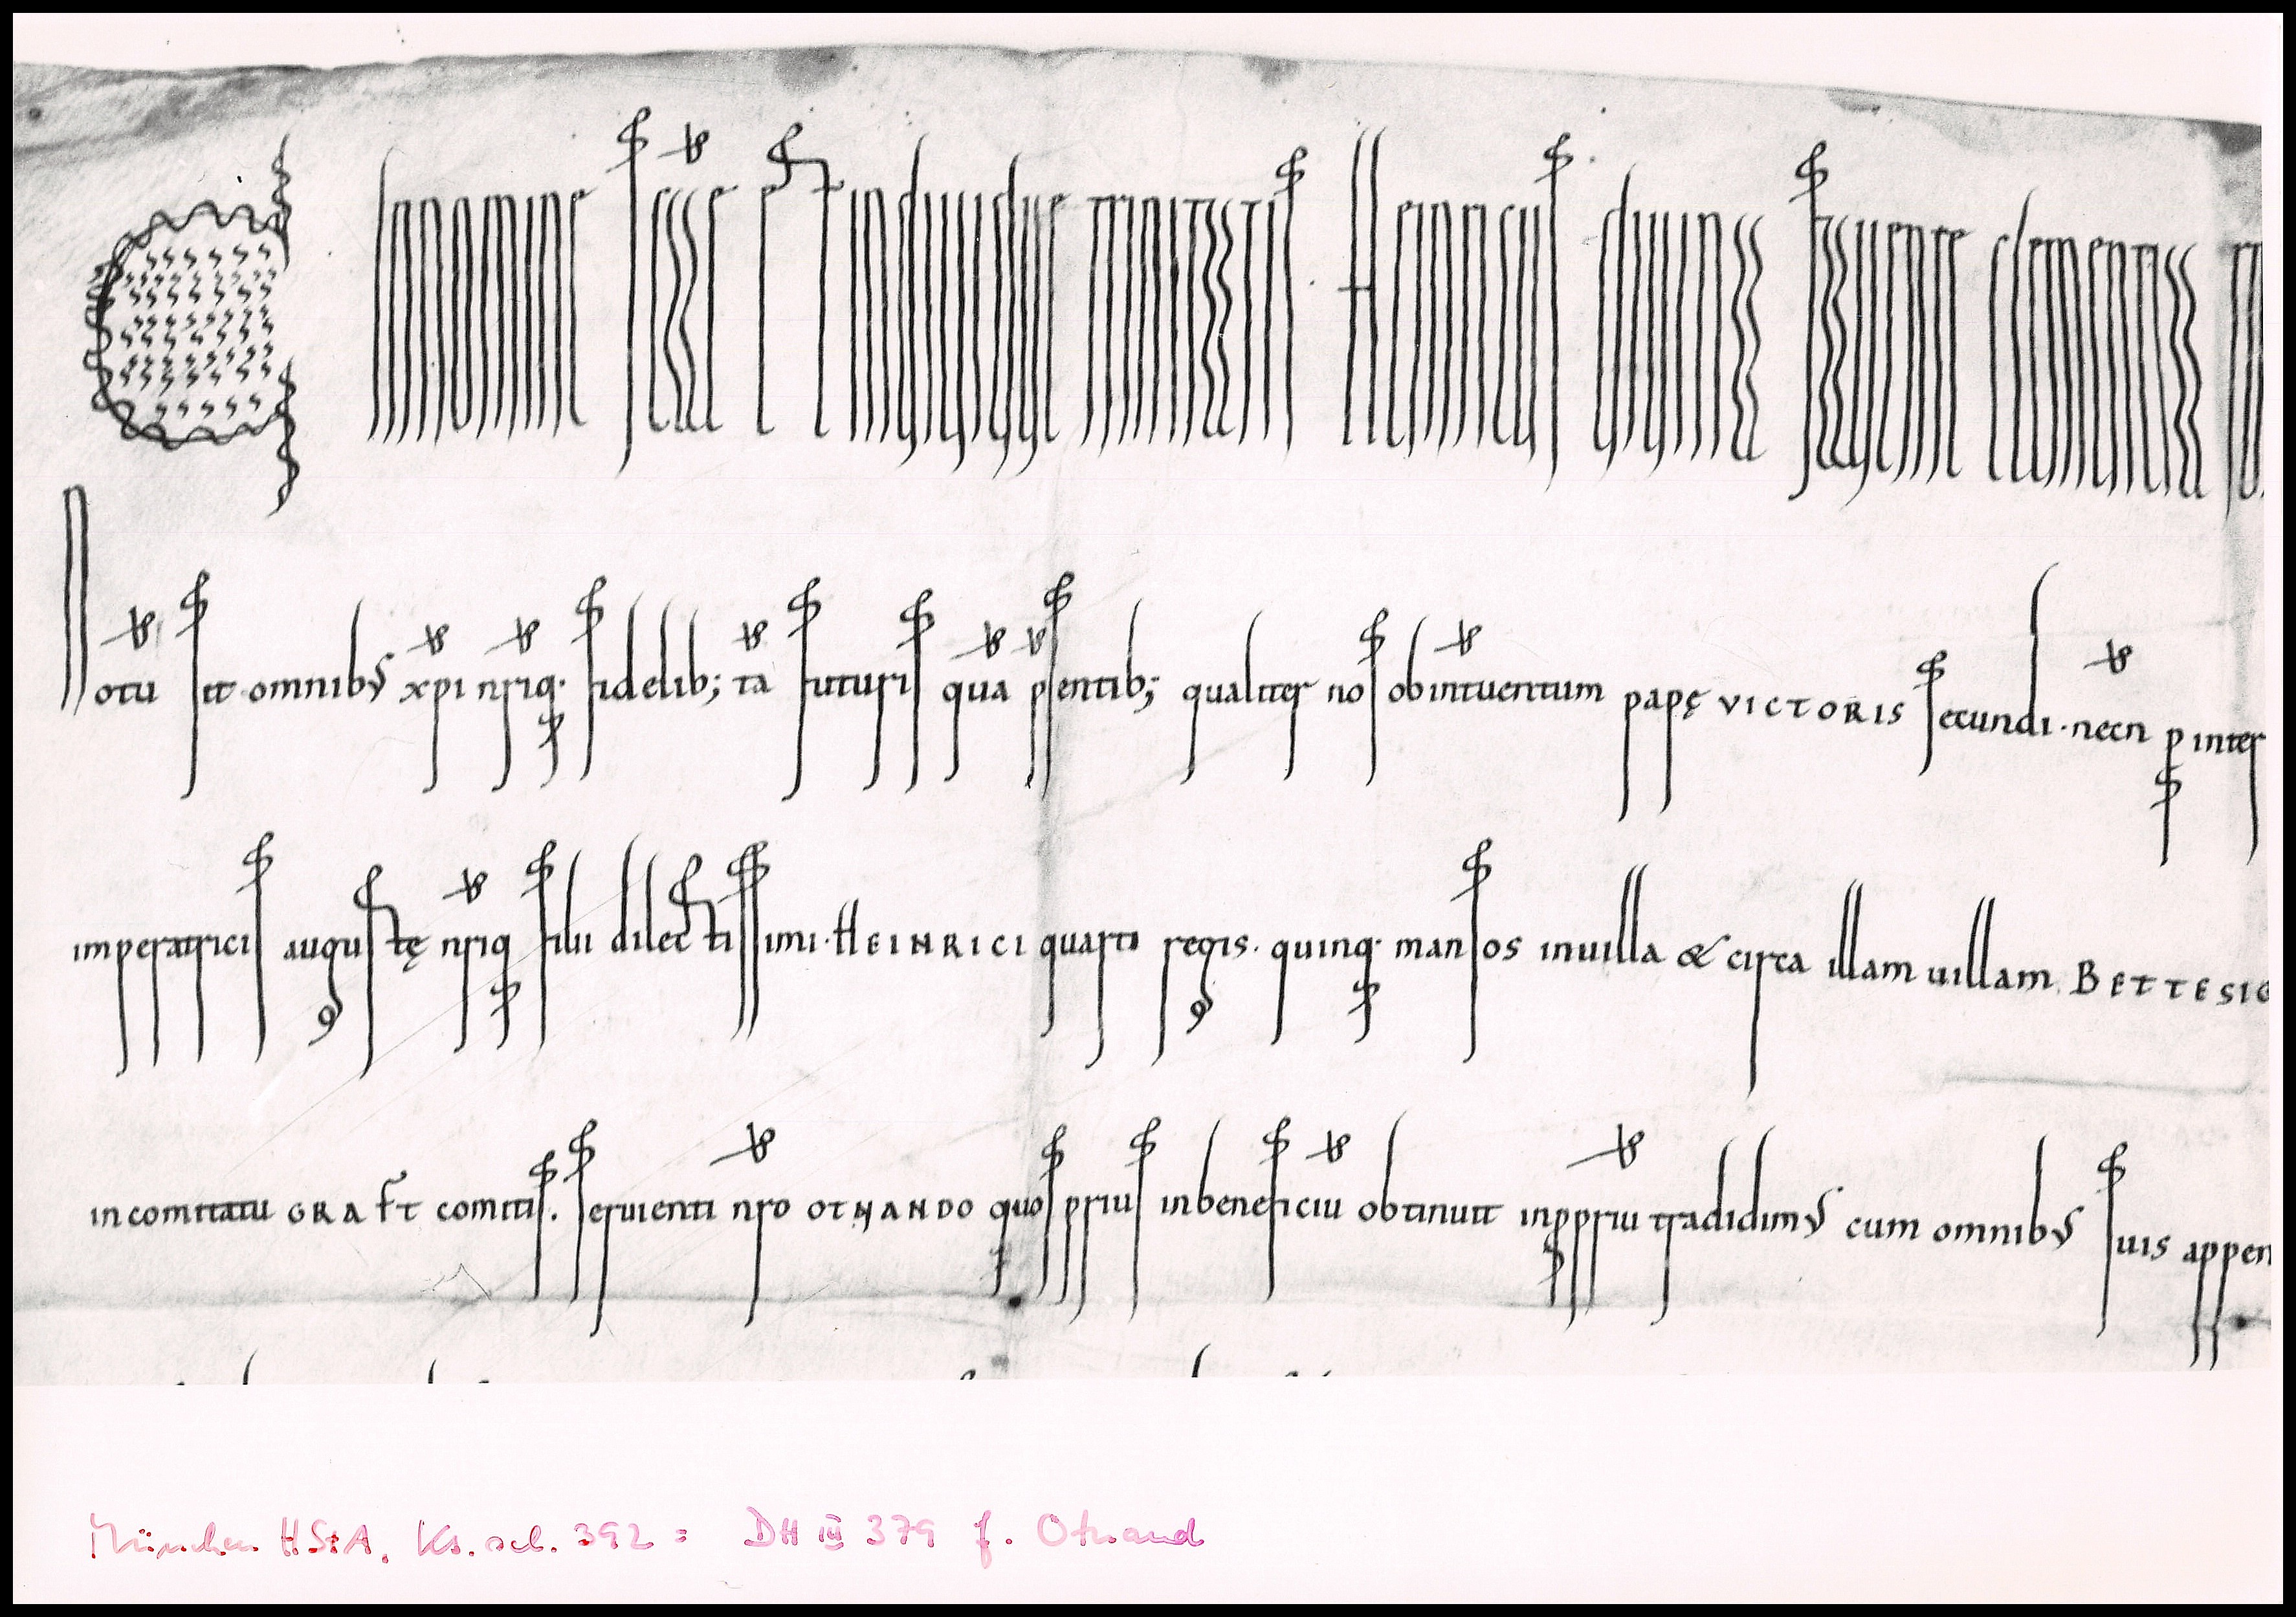 In nomine scae et indiuiduae trinitatis. Heinricus diuina fauente clementia
Notu sit omnibus xpi nriq. fidelib; ta futuris qua psentib; qualiter nos ob intuentum papę VICTORIS secundi. necn p inter
imperatricis augustę nriq filii dilectissimi. HEINRICI quarti regis. quinq. mansos in uilla & circa illam uillam BETTESIG
in comitatu GRAFT comitis. seruienti nro OTNANDO quos prius in beneficiu obtinuit in ppriu tradidimus cum omnibus suis appen
München HStA. Ks. sel. 392 = DH III 379 f. Otnand